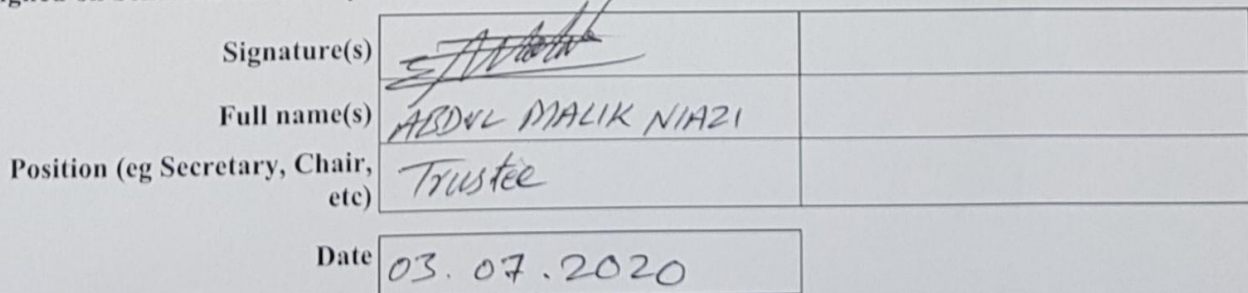 Signature(s)
Full name(s) ABDUL MALIK NIAZI
Position (eg Secretary, Chair, etc) Trustee
Date 03.07.2020